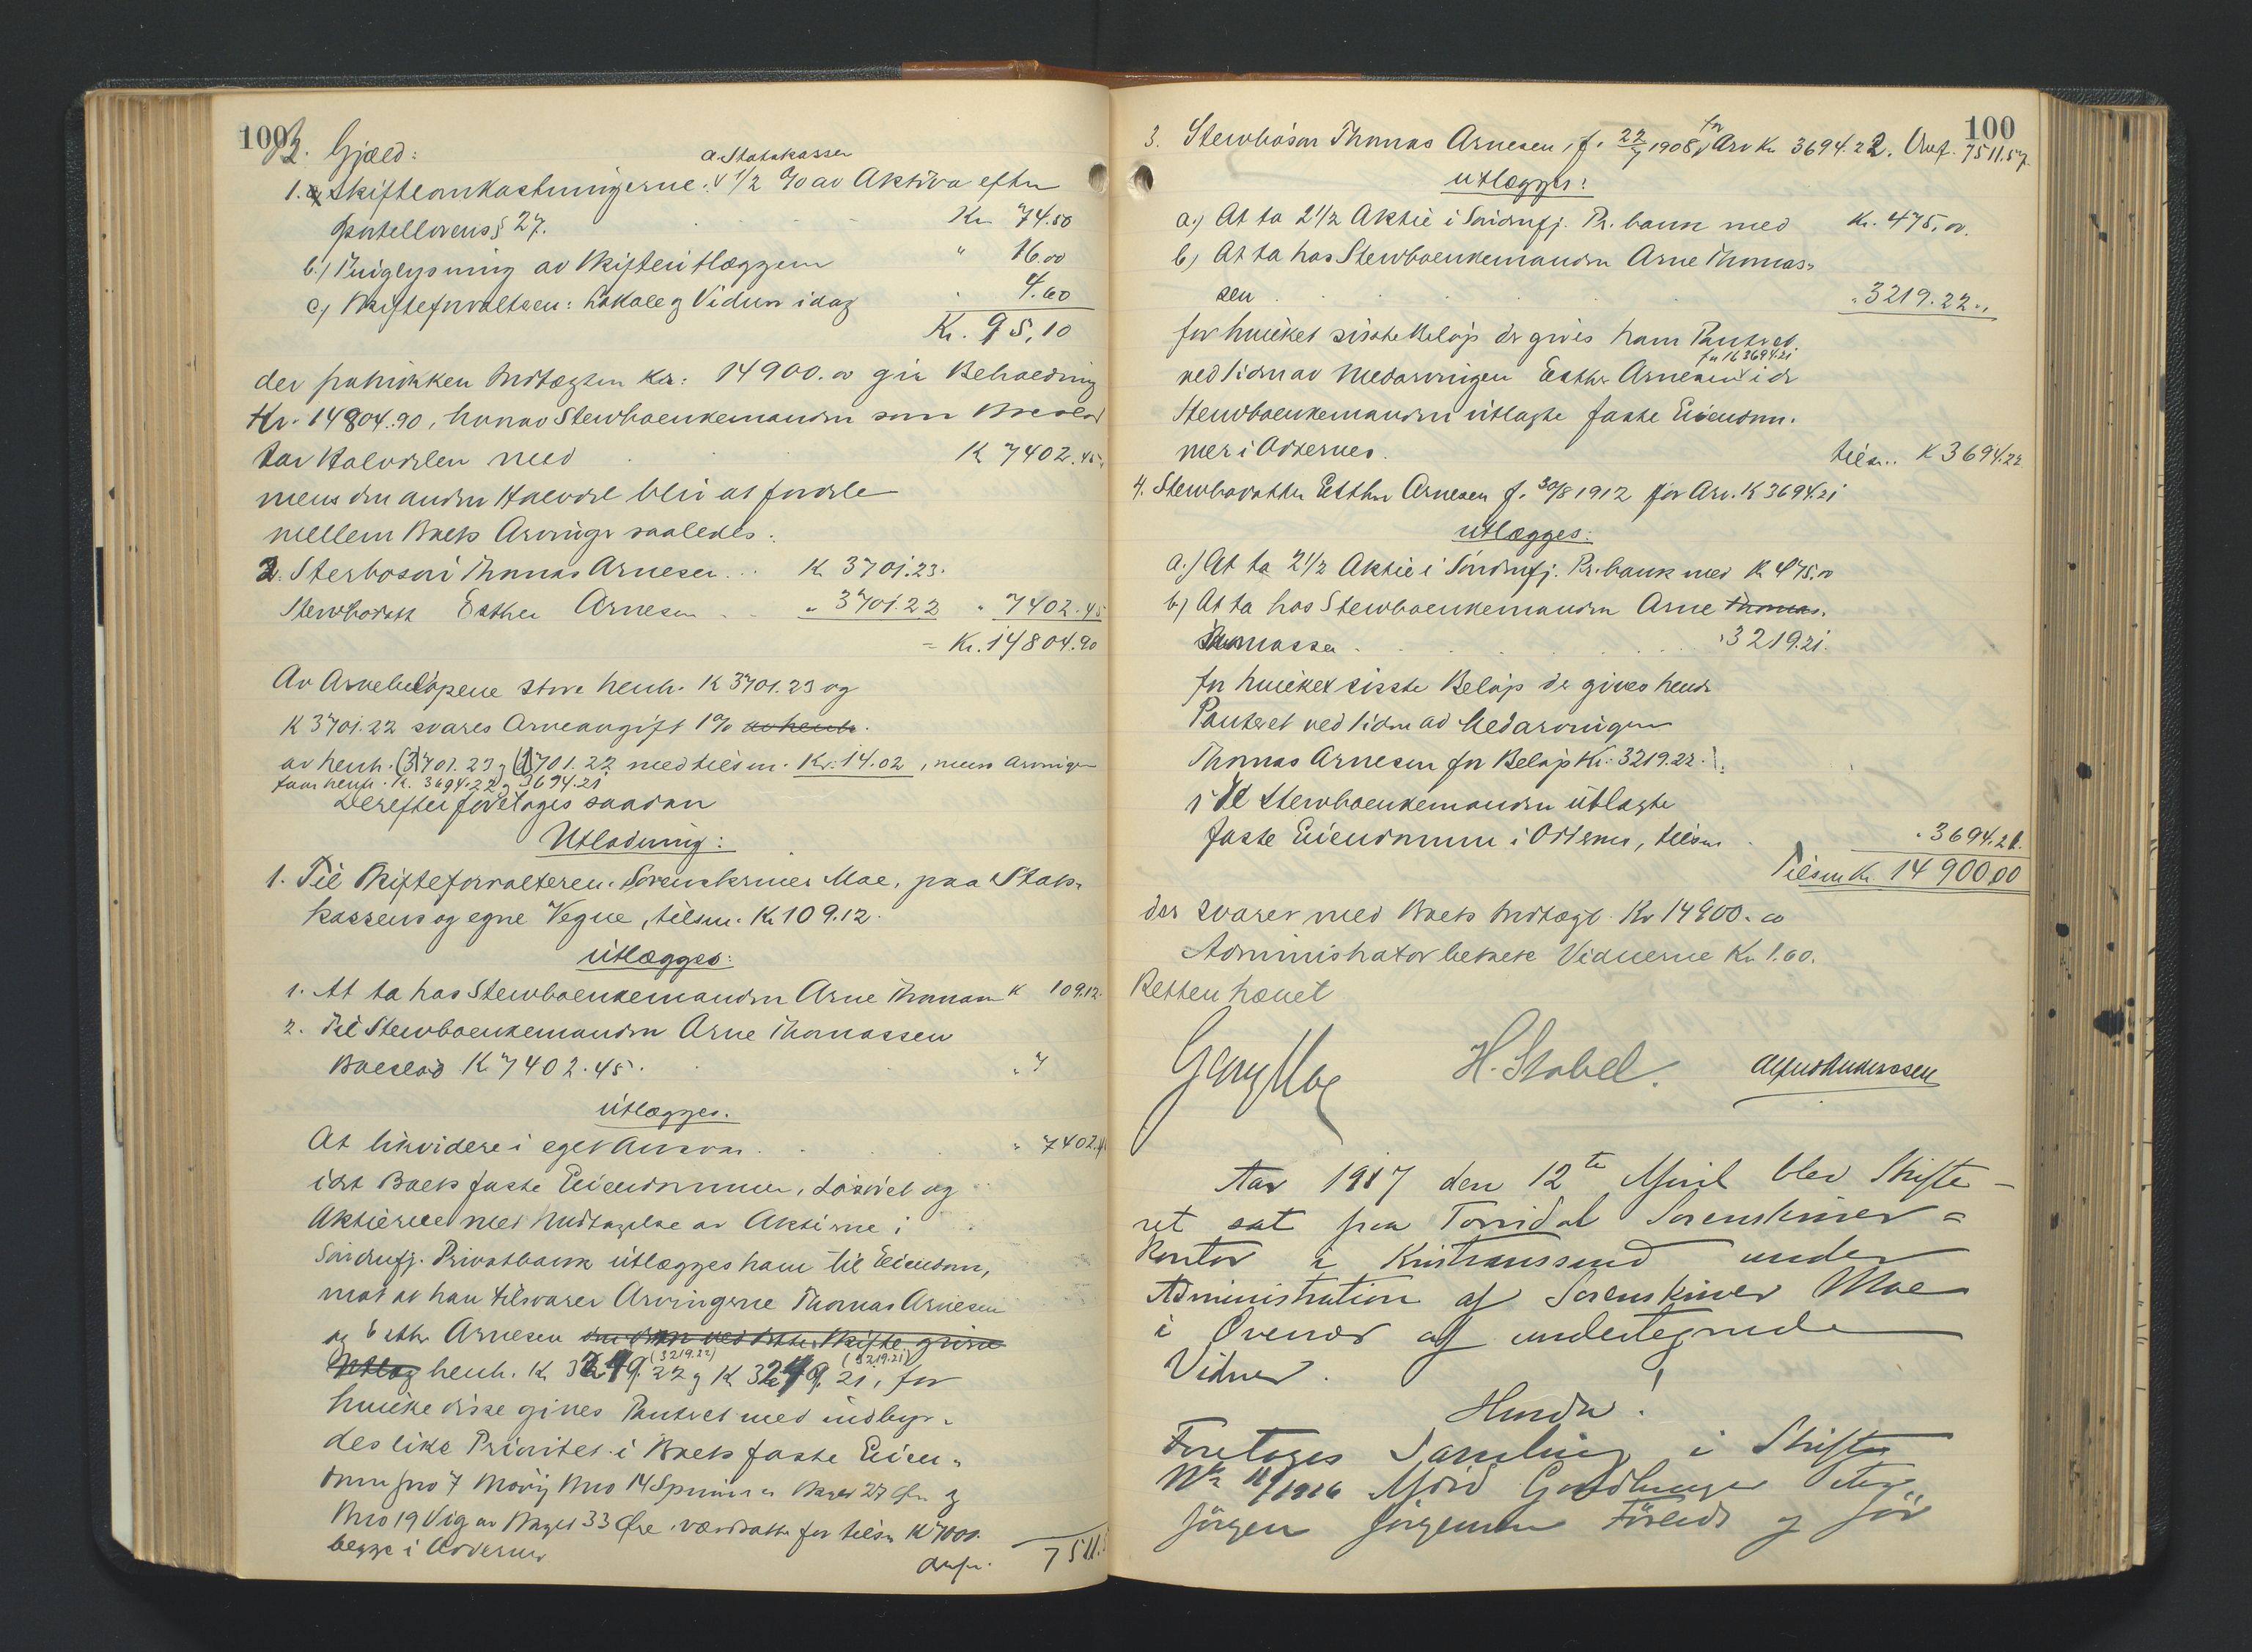 100
B. Gjæld:
a. Statskassen
1. Skifteomkostningerne: 1/2 % av Aktiva efter
Sportellovens § 27. Kr 74.50
b.) Tinglysning av Skifteutlæggene " 16.00
c) Skifteforvalteren: Lokale og Vidner idag 4.60
Kr. 95,10
der fratrukken Indtægten Kr: 14900.00 gir Beholdning
Kr. 14804.90, hvorav Sterboenkemanden som Boeslod
tar Halvdelen med K 7402.45
mens den anden Halvdel blir at fordele
mellem Boets Arvinger saaledes:
2. Sterbosøn Thomas Arnesen .. K 3701.23.
Sterbodatt Esther Arnesen .. " 3701.22 " 7402.45
= Kr. 14804.90
Av Arvebeløpene store henh. K 3701.23 og
K 3701.22 svares Arveavgift 1% av henh.
av henh. (3)701.23 og (3)701.22 med tilsm. Kr: 14.02, mens Arvinger
faar henh. K. 3694.22 og 3694.21
Derefter foretages saadan
Utlodning:
1. Til Skifteforvalteren. Sorenskriver Moe, paa Stats-
kassens og egne Vegne, tilsm. Kr 109.12.
utlægges:
1. At ta hos Sterboenkemanden Arne Thomassen K 109.12.
2. Til Sterboenkemanden Arne Thomassen
Boeslod K 7402.45.
utlægges.
At likvidere i eget Ansvar. " 7402.45
idet Boets faste Eiendommer, Løsøret og
Aktierne med Undtagelse av Aktierne i
Søndmfj. Privatbank utlægges ham til Eiendom,
mot at han tilsvarer Arvingerne Thomas Arnesen
og Esther Arnesen den dem ved dette Skifte givne
(3219.22) (3219.21)
Utlæg henh. K 3219.22 og K 3219.21, for
hvilke disse gives Panteret med indbyr-
des like Prioritet i Boets faste Eien-
domme Bno 19 Vig av Bruget 33 Øre værdsatte for tilsm K 7000.
begge i Odderness
Overf. 7511.
100
3. Sterbosøn Thomas Arnesen, f. 22/7 1908, for Arv Kr 3694.22. Overf. 7511.57
utlægges:
a.) At ta 2 1/2 Aktie i Søndmfj. Pr. bank med Kr. 475,00.
b) At ta hos Sterboenkemanden Arne Thomas-
sen " 3219.22
for hvilket sisste Beløp der gives ham Panteret
for K 3694.21
ved Siden av Medarvingen Esther Arnesen i de
Sterboenkemanden utlagte faste Eiendom-
mer i Odernes. tilsm. K 3694.22
4. Sterbodatter Esther Arnesen f. 30/8 1912 for Arv. K 3694.21
utlægges:
a.) At ta 2 1/2 Aktie i Søndmfj. Pr. bank med K 475.00
b) At ta hos Sterboenkemanden Arne Thomas.
Thomassen " 3219.21.
for hvilket sisste Beløp der gives hende
Panteret ved Siden av Medarvingen
Thomas Arnesen for Beløp Kr: 3219.22
i de Sterboenkemanden utlagte
faste Eiendomme i Odernes, tilsm " 3694.21.
Tilsm Kr. 14900,00
der svarer med Boets Indtægt Kr 14900.00
Administrator betalte Vidnerne Kr 1.60.
Retten hævet
Georg Moe H. Stabel. Alfred Andersen
Aar 1917 den 12te April blev Skifte-
ret sat paa Torridal Sorenskriver=
kontor i Kristianssand under
Administration af Sorenskriver Moe
i Overvær af undertegnede
Vidner.
Hvorda!
Foretages Samling i Skifte
No 11/1916 Gudbrand
Jørgen Jørgensen og